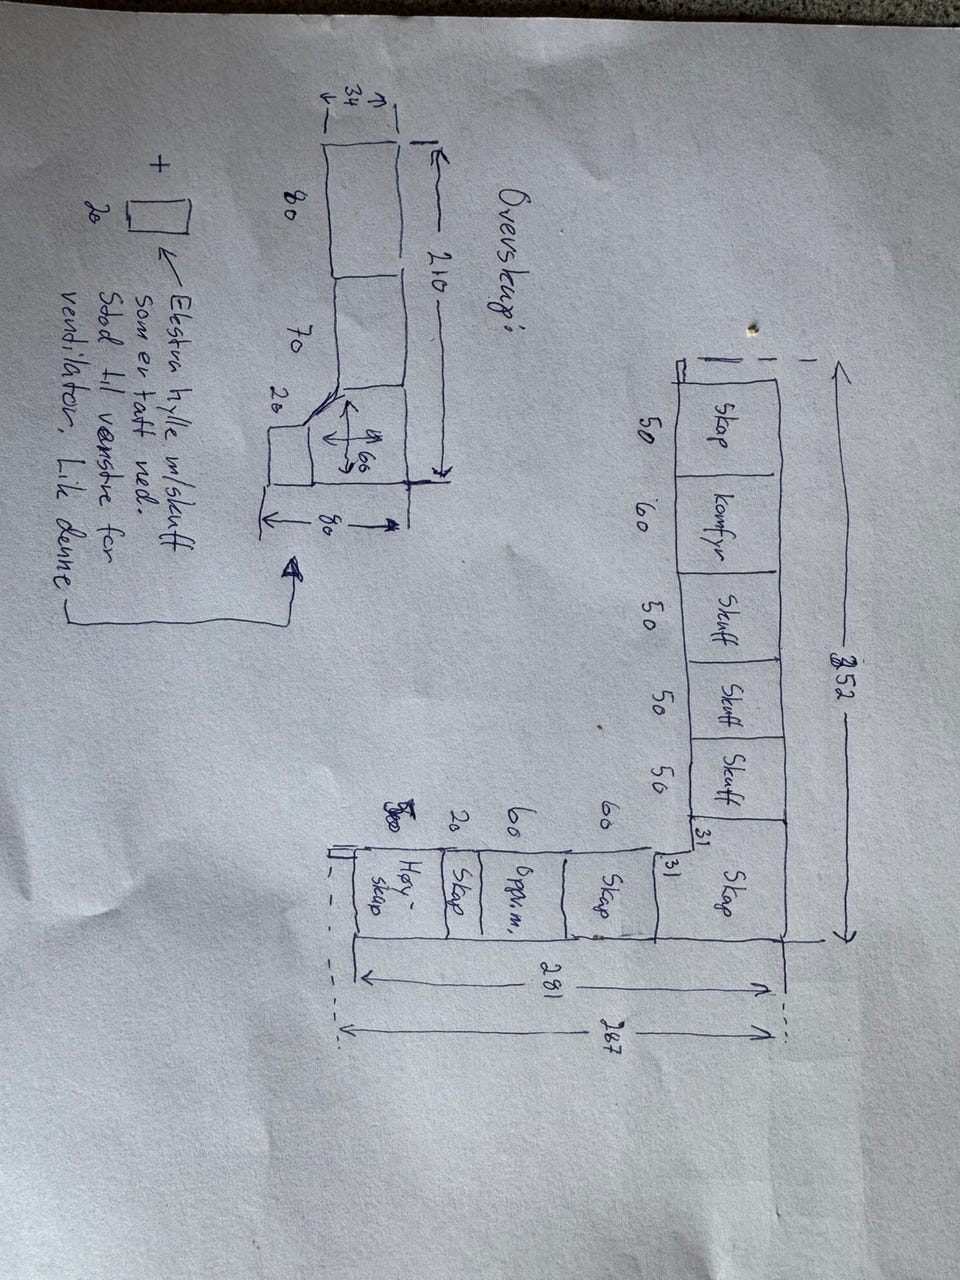 Overskap:
34
210
80
70
20
60
80
+
20
Ekstra hylle m/skuff
som er tatt ned.
Stod til venstre for
ventilator. Lik denne
352
Skap
Komfyr
Skuff
Skuff
Skuff
Skap
50
60
50
50
50
31
31
Skap
Oppvm.
Skap
Høy-
skap
60
60
20
281
287